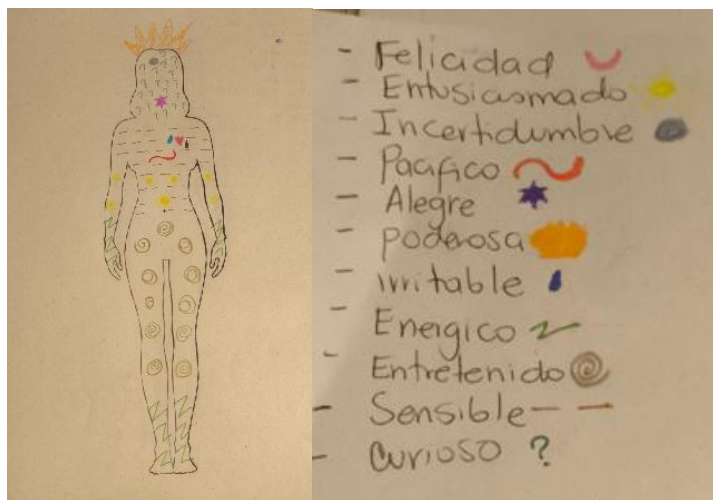 - Felicidad
- Entusiasmado
- Incertidumbre
- Pacifico
- Alegre
- poderosa
- irritable
- Energico
- Entretenido
- Sensible
- curioso ?